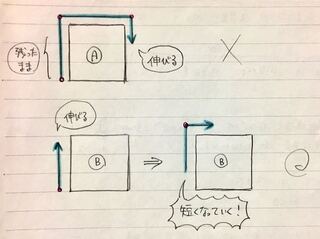 残った
まま
A
伸びる
伸びる
B
⇒
B
短くなっていく!